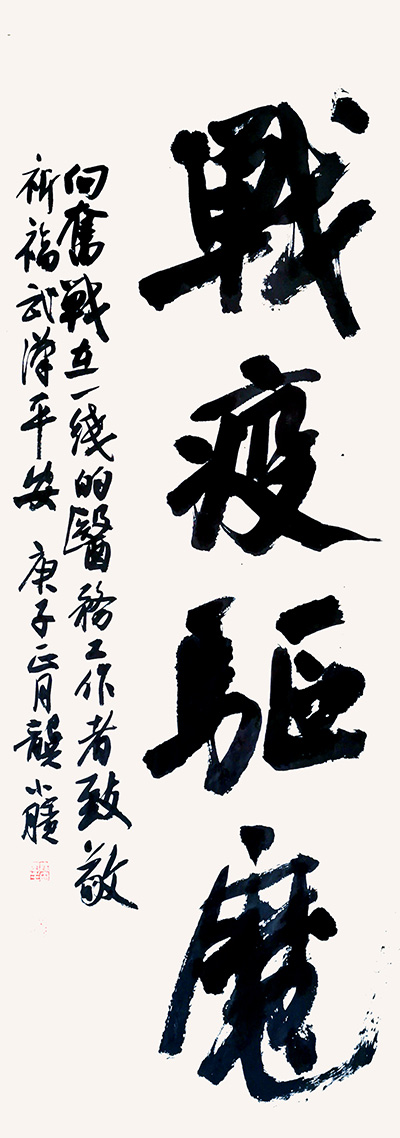 戰疫驅魔
向奮戰在一綫的醫務工作者致敬
祈福武漢平安 庚子正月龔小